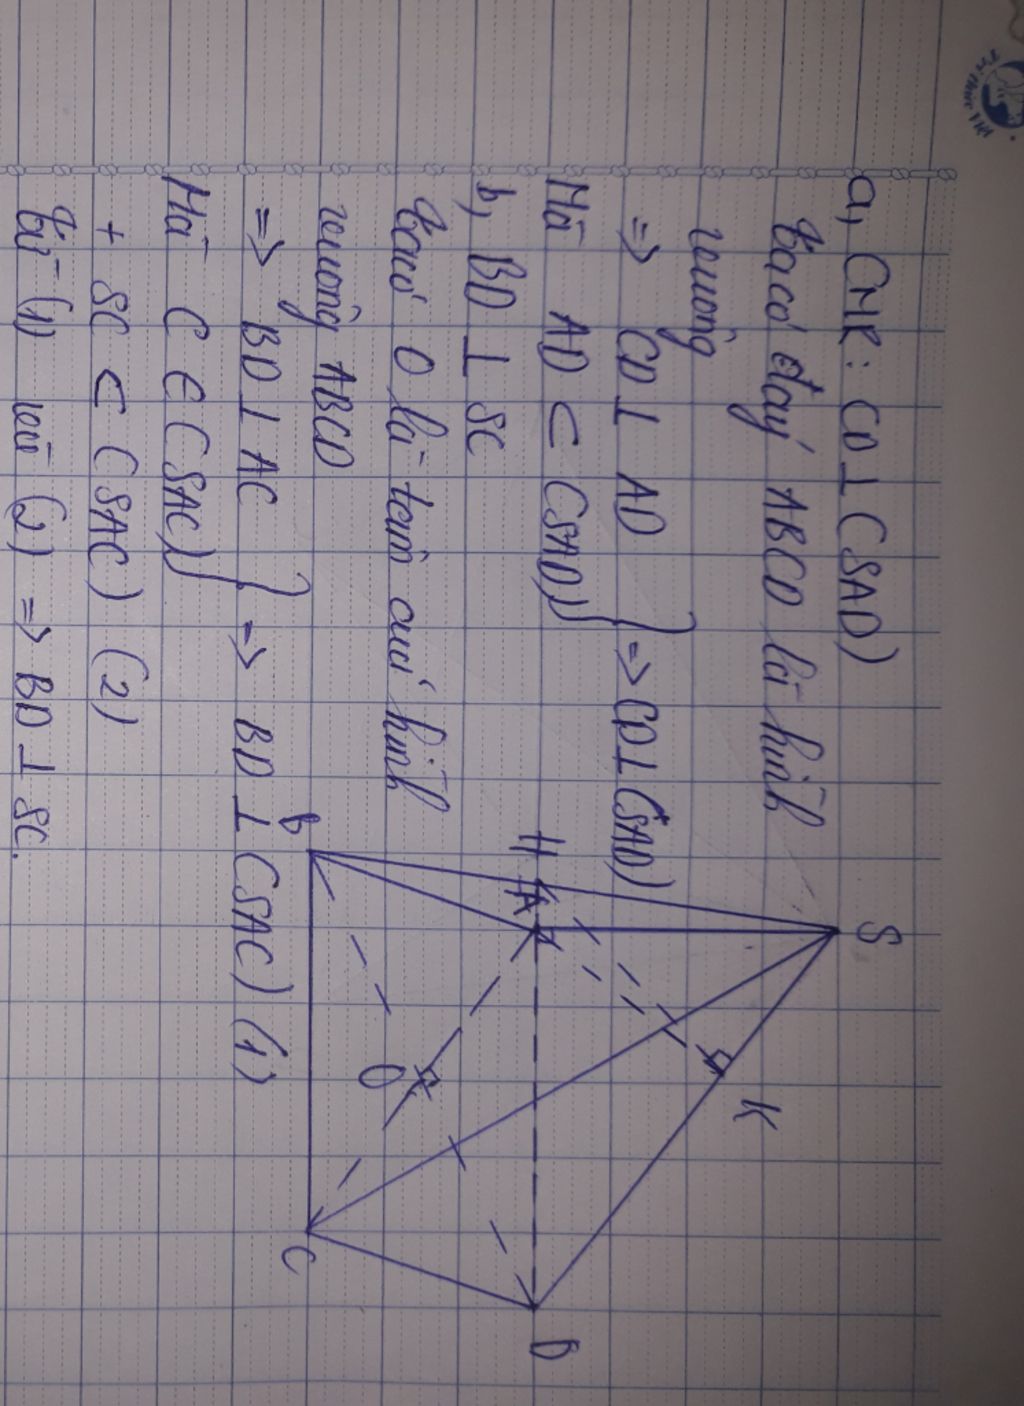 Trí thức Việt
a, CMR: CD ⊥ (SAD)
Ta có đáy ABCD là hình
vuông
=> CD ⊥ AD
Mà AD ⊂ (SAD) } => CD ⊥ (SAD)
b, BD ⊥ SC
Ta có O là tâm của hình
vuông ABCD
=> BD ⊥ AC
Mà C ∈ (SAC) } => BD ⊥ (SAC) (1)
+ SC ⊂ (SAC) (2)
Từ (1) và (2) => BD ⊥ SC.
S
K
H
A
D
O
B
C